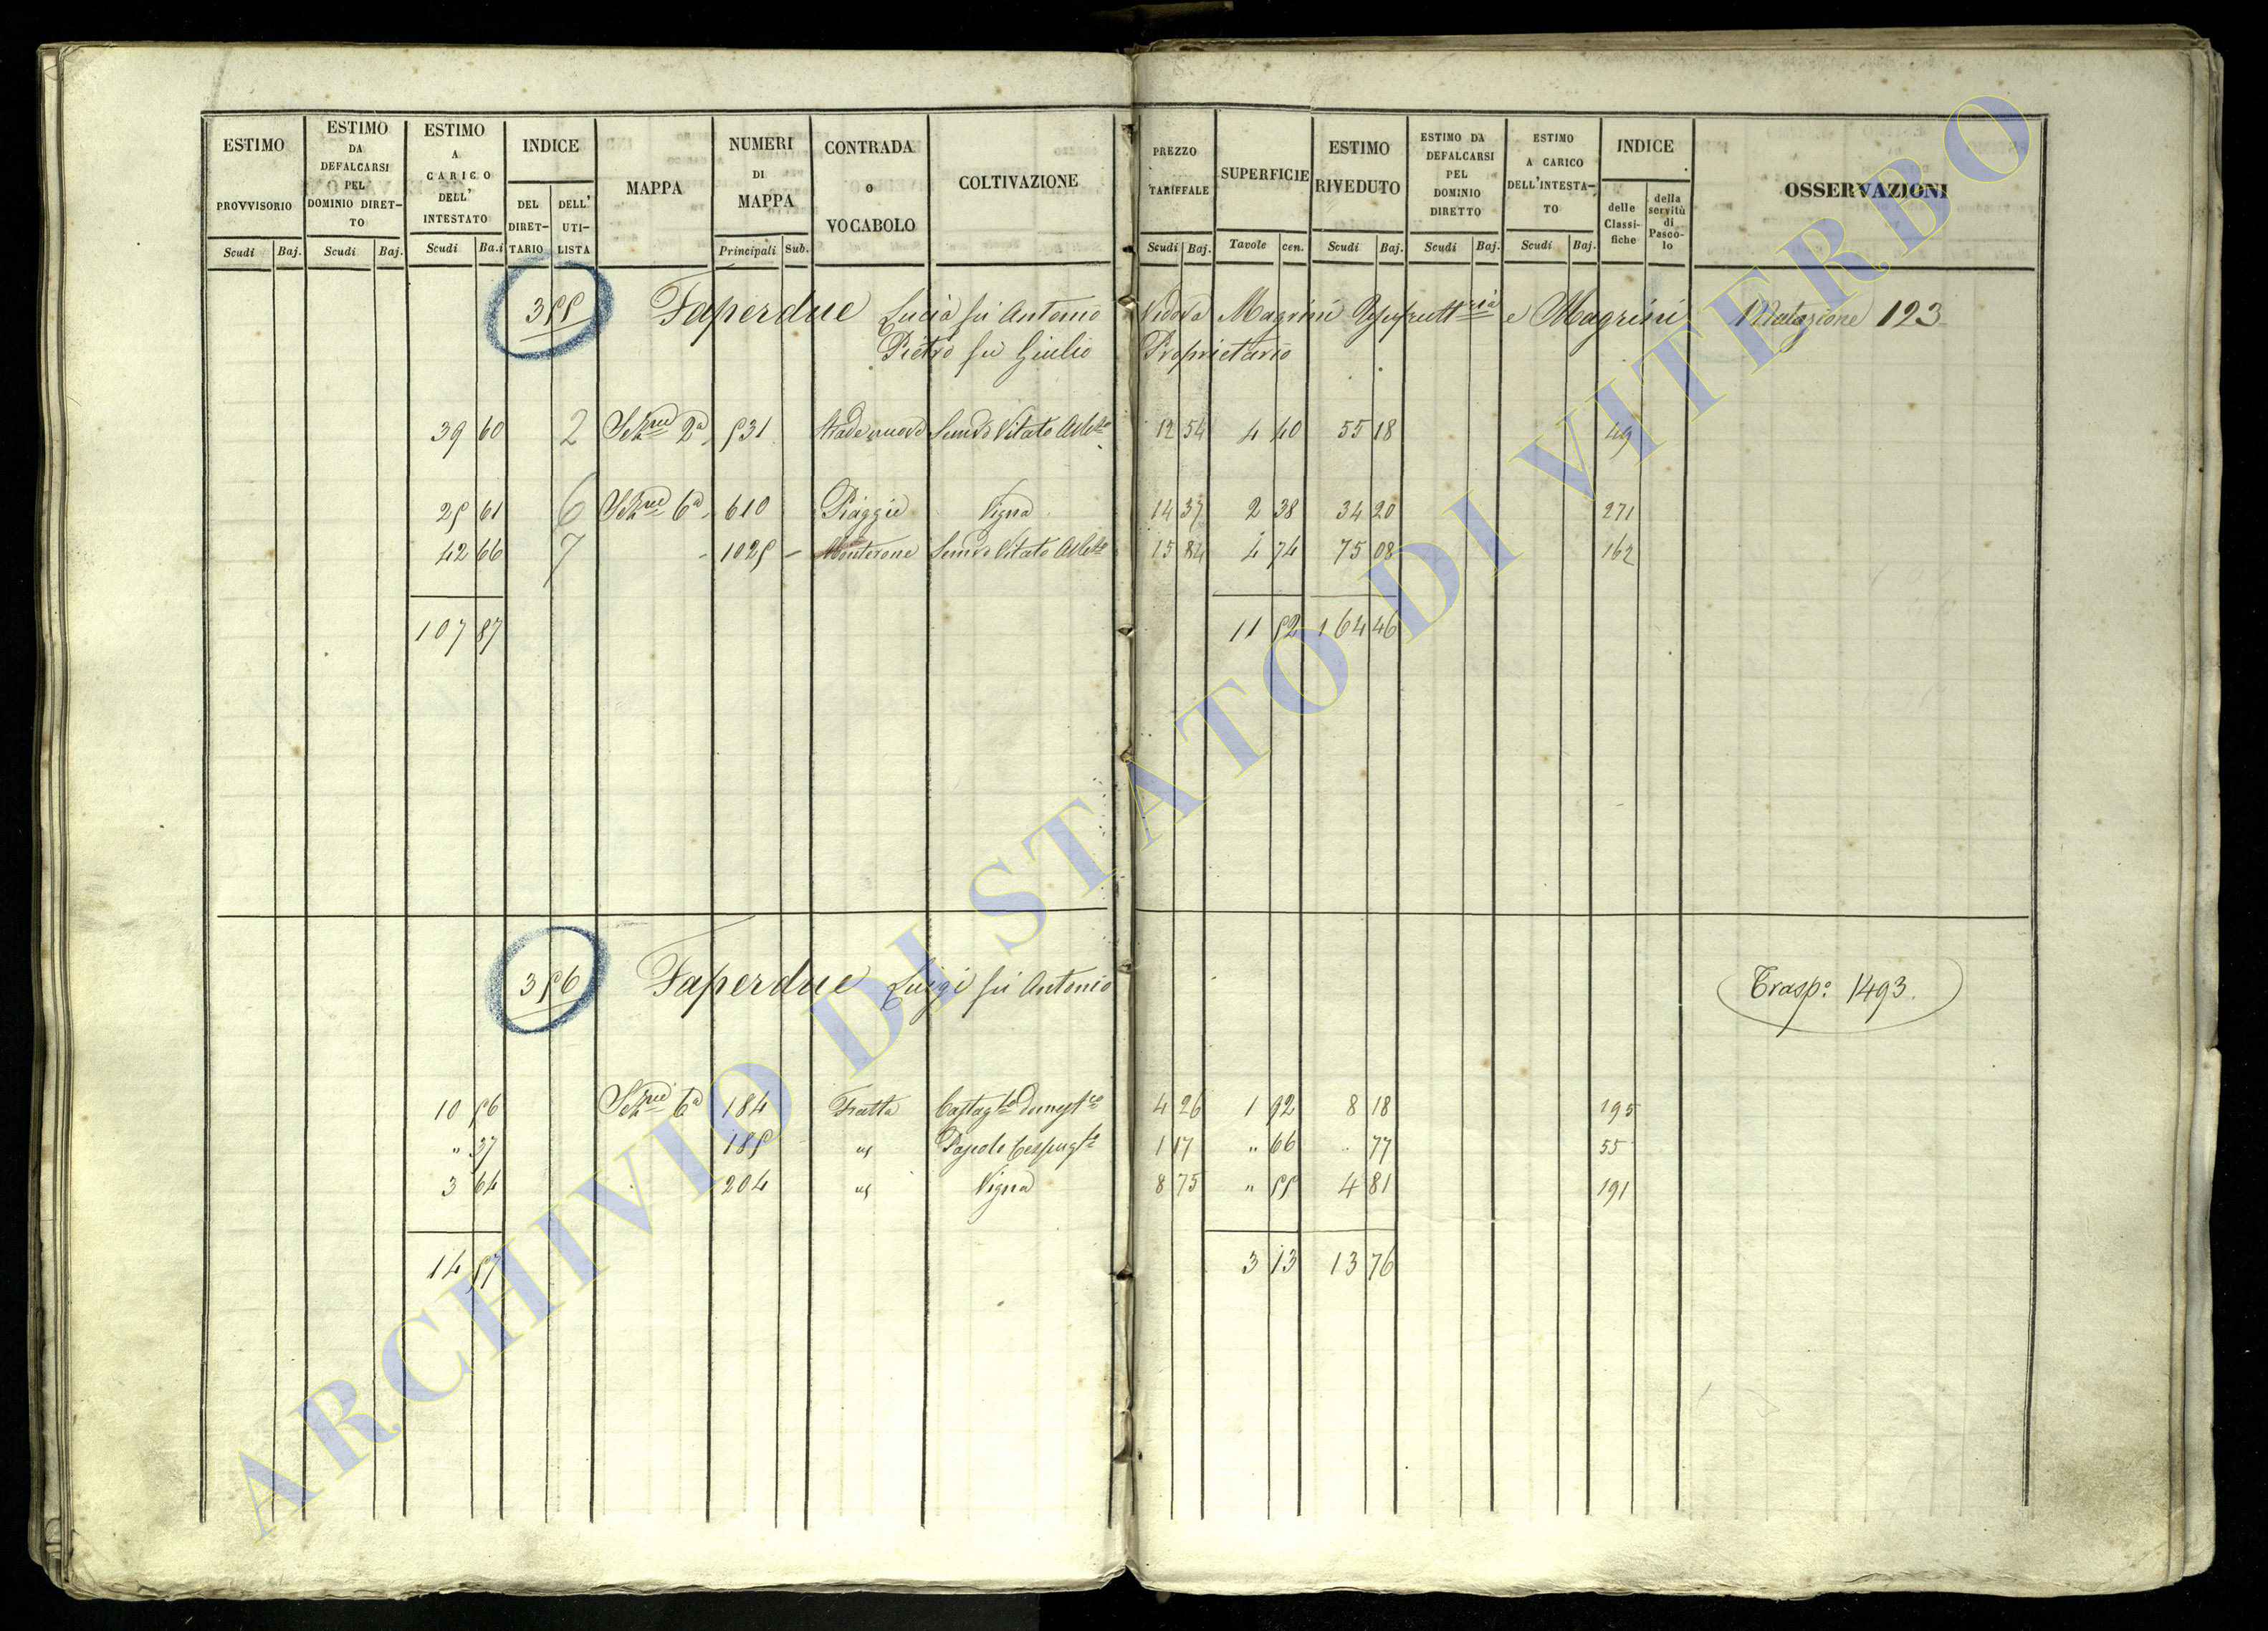 ESTIMO PROVVISORIO
ESTIMO DA DEFALCARSI PEL DOMINIO DIRET-TO
ESTIMO A CARICO DELL' INTESTATO
INDICE
DEL DIRET-TARIO
DELL' UTI-LISTA
MAPPA
NUMERI DI MAPPA
CONTRADA O VOCABOLO
COLTIVAZIONE
PREZZO TARIFFALE
SUPERFICIE
ESTIMO RIVEDUTO
ESTIMO DA DEFALCARSI PEL DOMINIO DIRETTO
ESTIMO A CARICO DELL'INTESTA-TO
INDICE
delle Classi-fiche
della servitù di Pasco-lo
OSSERVAZIONI
Scudi Baj. Scudi Baj. Scudi Ba.i Principali Sub. Scudi Baj. Tavole cen. Scudi Baj. Scudi Baj. Scudi Baj.
355 Faperdue Lucia fu Antonio Vedova Magrini Usufruttria e Magrini Mutazione 123
Pietro fu Giulio Proprietario
39 60 2 Sezne 2a 531 Vitato 12 54 4 40 55 18 49
25 61 6 Sezne 6a 610 Piaggie Vigna 14 37 2 38 34 20 271
42 66 7 1025 Monterone Vitato 15 84 4 74 75 08 162
107 87 11 52 164 46
356 Faperdue Luigi fu Antonio Traspo 1493
10 56 Sezne 6a 184 Fratta Castagto Domestco 4 26 1 92 8 18 195
" 37 185 " Pascolo Cespugto 1 17 " 66 " 77 55
3 64 204 " Vigna 8 75 " 55 4 81 191
14 57 3 13 13 76
ARCHIVIO DI STATO DI VITERBO